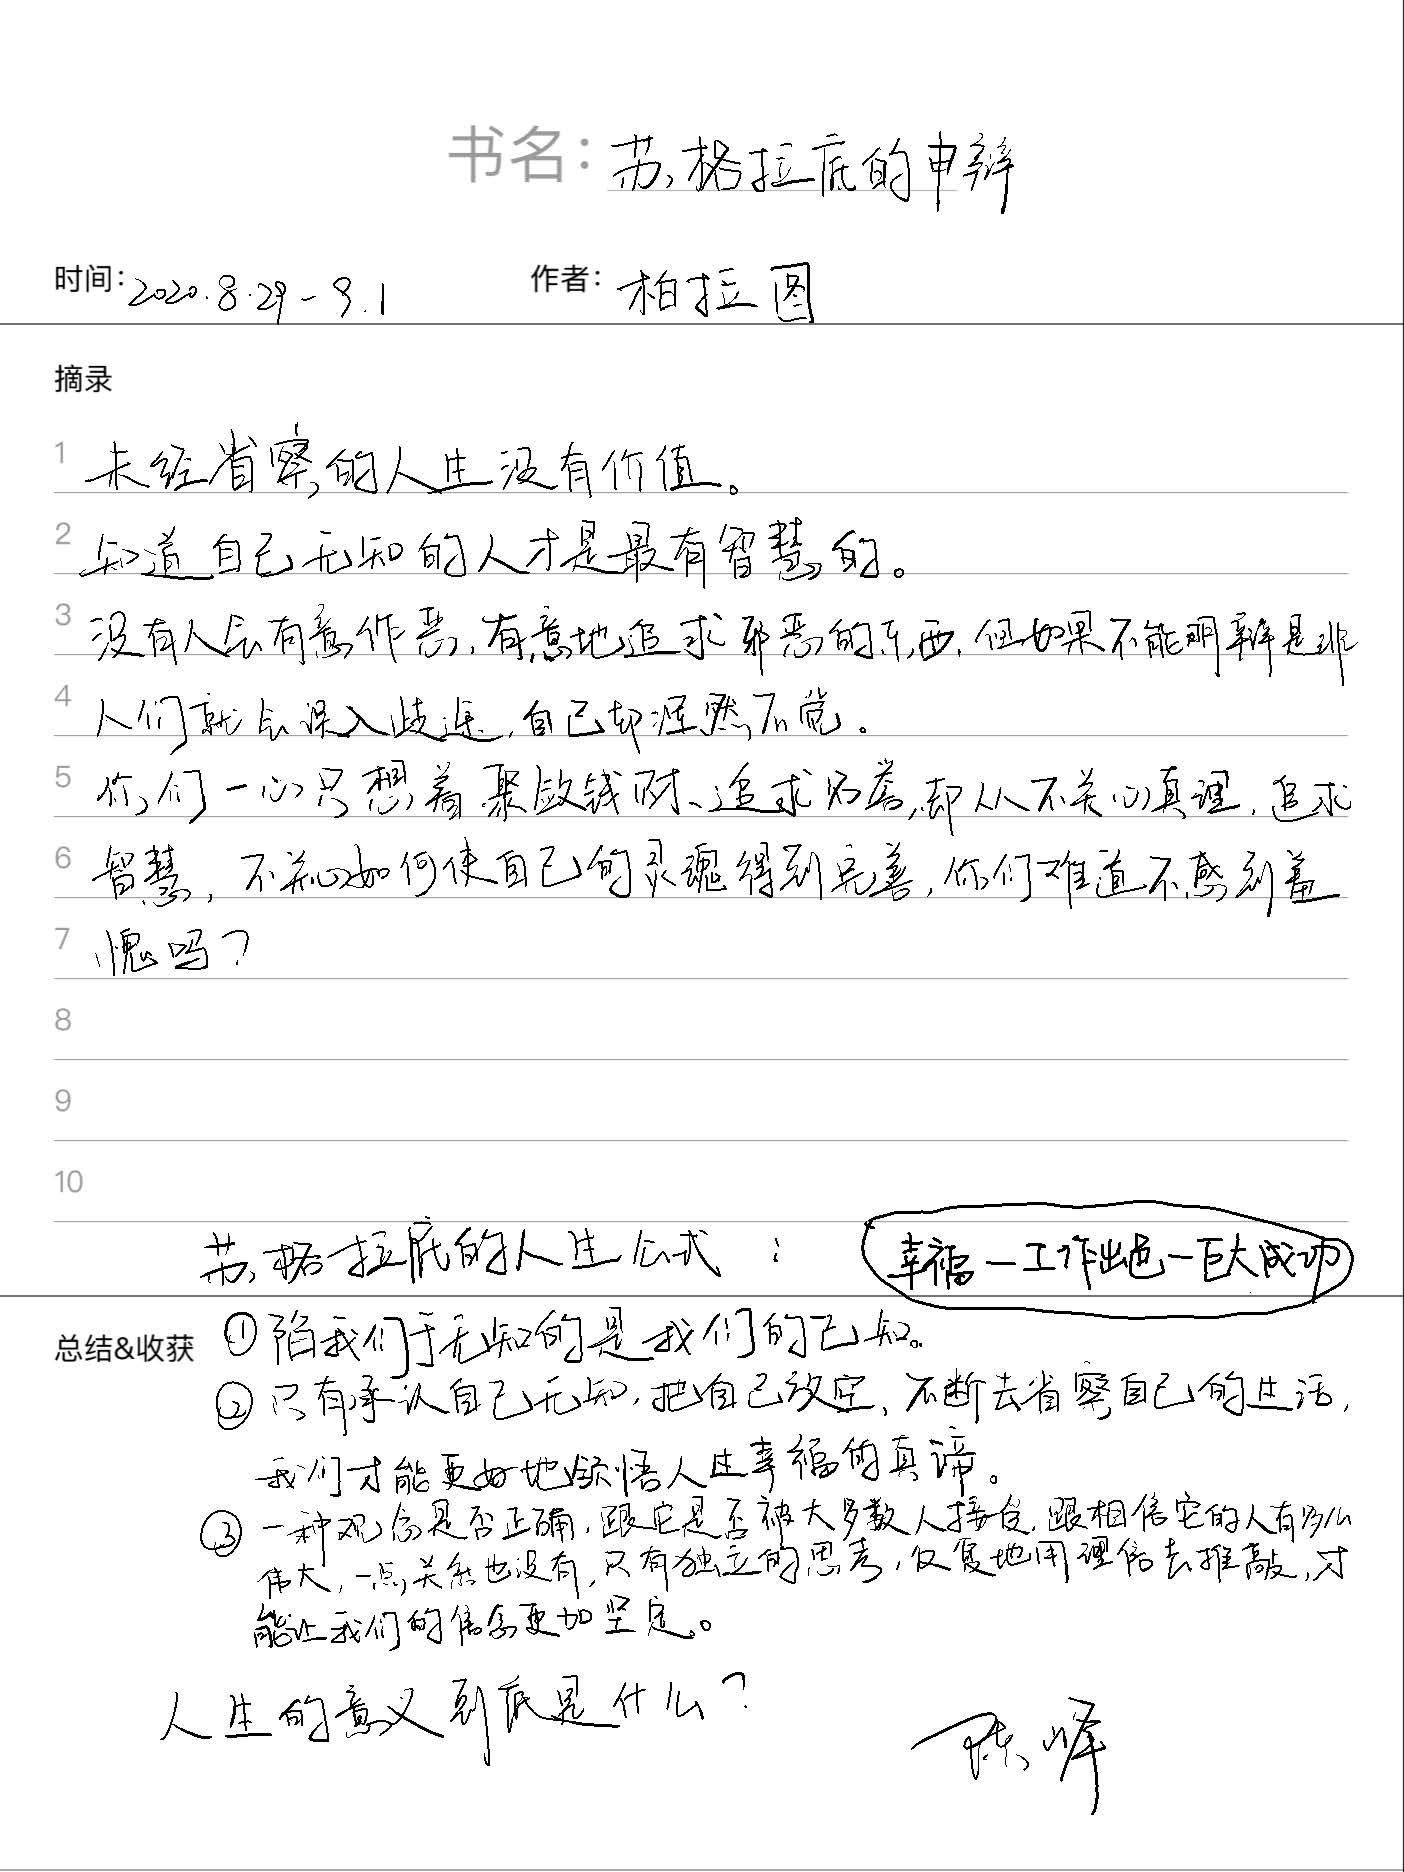 书名：苏格拉底的申辩
时间：2020.8.29-9.1 作者：柏拉图
摘录
1 未经省察的人生没有价值。
2 知道自己无知的人才是最有智慧的。
3 没有人会有意作恶，有意地追求邪恶的东西，但如果不能明辨是非
4 人们就会误入歧途，自己却浑然不觉。
5 你们一心只想着聚敛钱财、追求名誉，却从不关心真理，追求
6 智慧，不关心如何使自己的灵魂得到完善，你们难道不感到羞
7 愧吗？
8
9
10
苏格拉底的人生公式：幸福—工作出色—巨大成功
总结&收获 ①陷我们于无知的是我们的已知。
②只有承认自己无知，把自己放空，不断去省察自己的生活，
我们才能更好地领悟人生幸福的真谛。
③一种观念是否正确，跟它是否被大多数人接受，跟相信它的人有多么
伟大，一点关系也没有，只有独立的思考，反复地用理信去推敲，才
能让我们的信念更加坚定。
人生的意义到底是什么？
陈峰